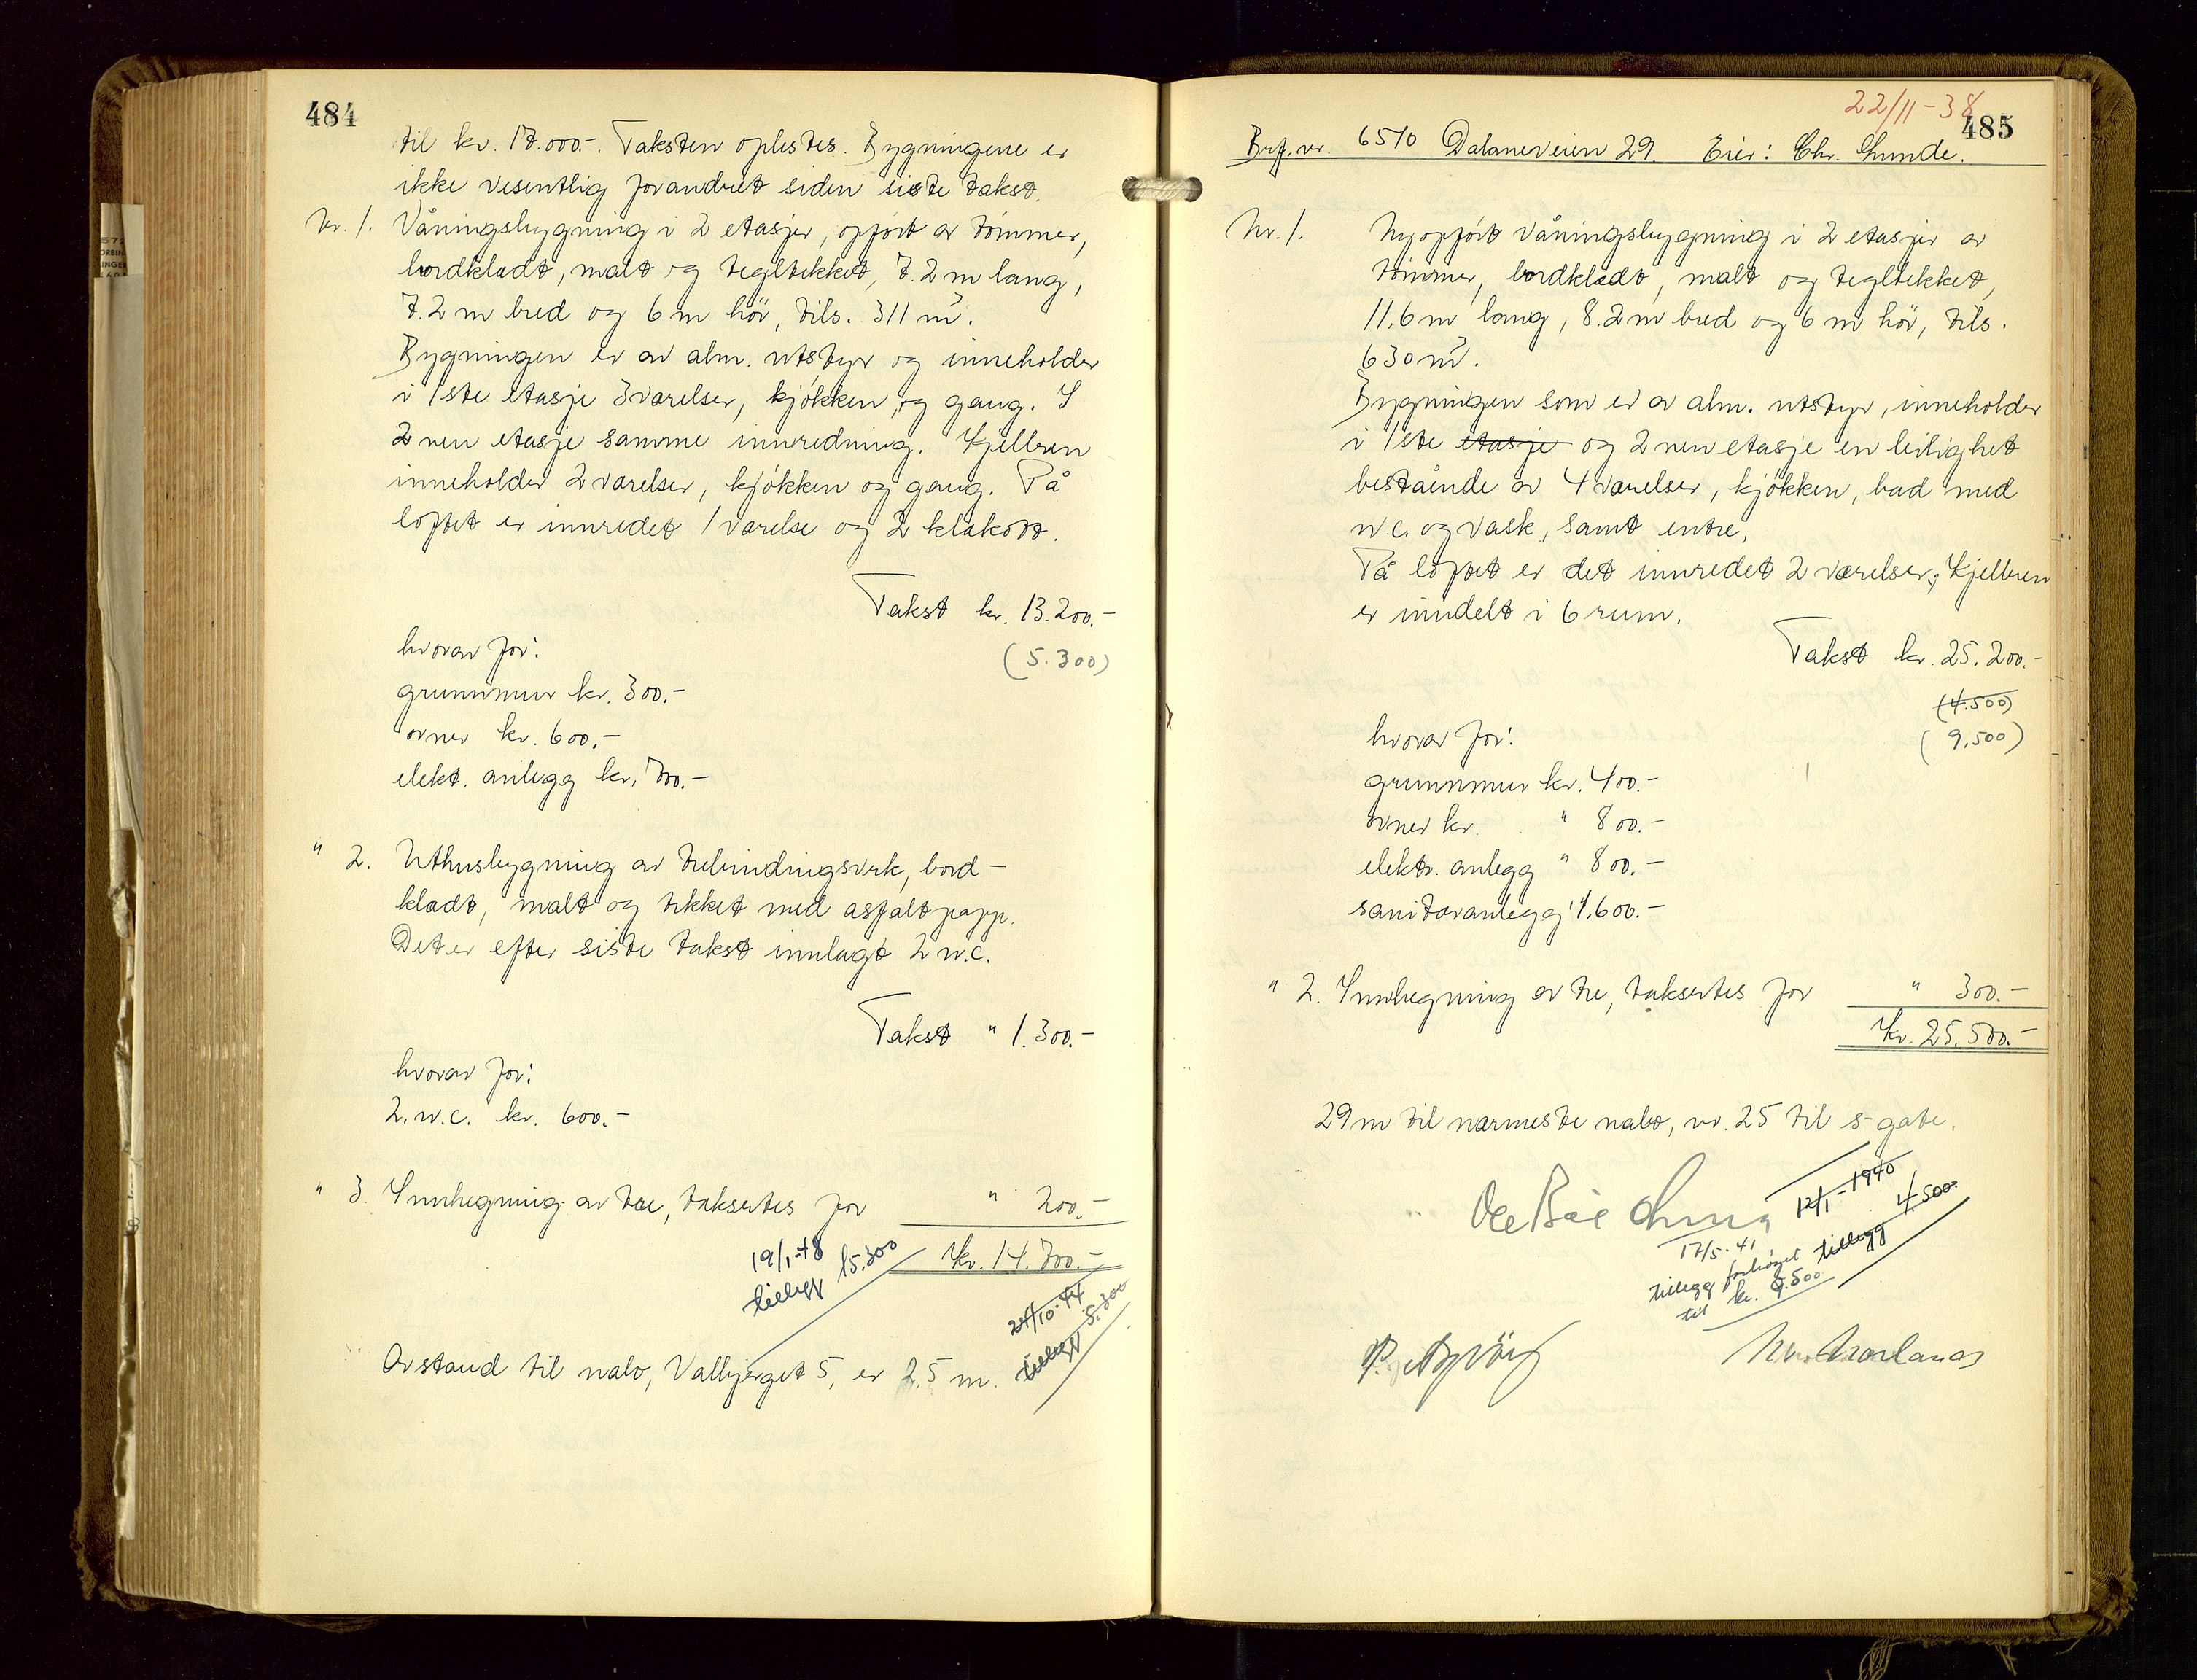 484
til kr. 17.000.-. Taksten oplestes. Bygningene er
ikke vesentlig forandret siden siste takst.
Nr. 1. Våningsbygning i 2 etasjer, opført av tømmer,
bordkledt, malt og tegltekket, 7.2 m lang,
7.2 m bred og 6 m høi, tils. 311 m³.
Bygningen er av alm. utstyr og inneholder
i 1ste etasje 3 værelser, kjøkken og gang. I
2nen etasje samme innredning. Kjelleren
inneholder 2 værelser, kjøkken og gang. På
loftet er innredet 1 værelse og 2 klækott.
Takst kr. 13.200.-
(5.300)
hvorav for:
grunnmur kr. 300.-
ovner kr. 600.-
elekt. anlegg kr. 700.-
" 2. Uthusbygning av trebindingsverk, bord-
kledt, malt og tekket med asfaltpapp.
Det er efter siste takst innlagt 2 w.c.
Takst " 1.300.-
hvorav for:
2. w.c. kr. 600.-
" 3. Innhegning av tre, taksertes for " 200.-
Kr. 14.700.-
19/1-48
tillegg 15.300
24/10-44
tillegg 5.300
Avstand til nabo, Vallbjerget 5, er 2.5 m.
22/11-38
485
Brf. nr. 6510 Dalaneveien 29. Eier: Chr. Lunde.
Nr. 1. Nyopført våningsbygning i 2 etasjer av
tømmer, bordkledt, malt og tegltekket,
11.6 m lang, 8.2 m bred og 6 m høi, tils.
630 m³.
Bygningen som er av alm. utstyr, inneholder
i 1ste etasje og 2nen etasje en leilighet
bestående av 4 værelser, kjøkken, bad med
w.c. og vask, samt entre.
På loftet er det innredet 2 værelser; Kjelleren
er inndelt i 6 rum.
Takst kr. 25.200.-
(4.500)
(9.500)
hvorav for:
grunnmur kr. 400.-
ovner kr. " 800.-
elektr. anlegg " 800.-
sanitæranlegg " 1.600.-
" 2. Innhegning av tre, taksertes for " 300.-
Kr. 25.500.-
29 m til nærmeste nabo, nr. 25 til s- gate.
12/1-1940
tillegg 4.500.-
17/5-41
tillegg forhøiet
til kr. 9.500